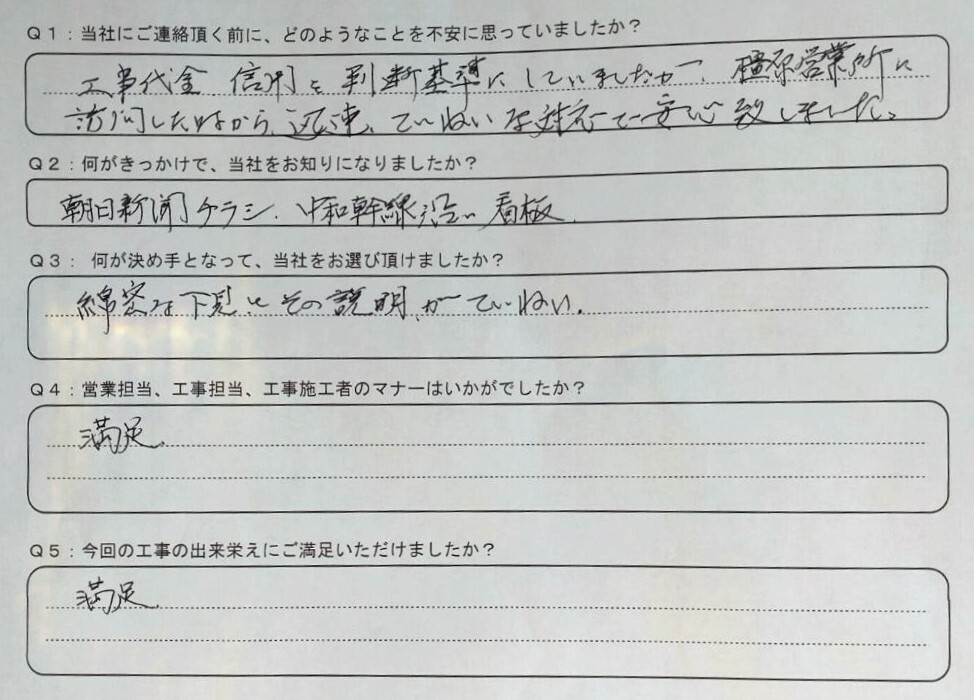 Q1：当社にご連絡頂く前に、どのようなことを不安に思っていましたか？
工事代金 信用を判断基準にしていましたが、橿原営業所に
訪問した時から、迅速、ていねいな対応で安心致しました。
Q2：何がきっかけで、当社をお知りになりましたか？
朝日新聞チラシ、中和幹線沿い看板
Q3： 何が決め手となって、当社をお選び頂けましたか？
綿密な下見とその説明がていねい。
Q4：営業担当、工事担当、工事施工者のマナーはいかがでしたか？
満足
Q5：今回の工事の出来栄えにご満足いただけましたか？
満足